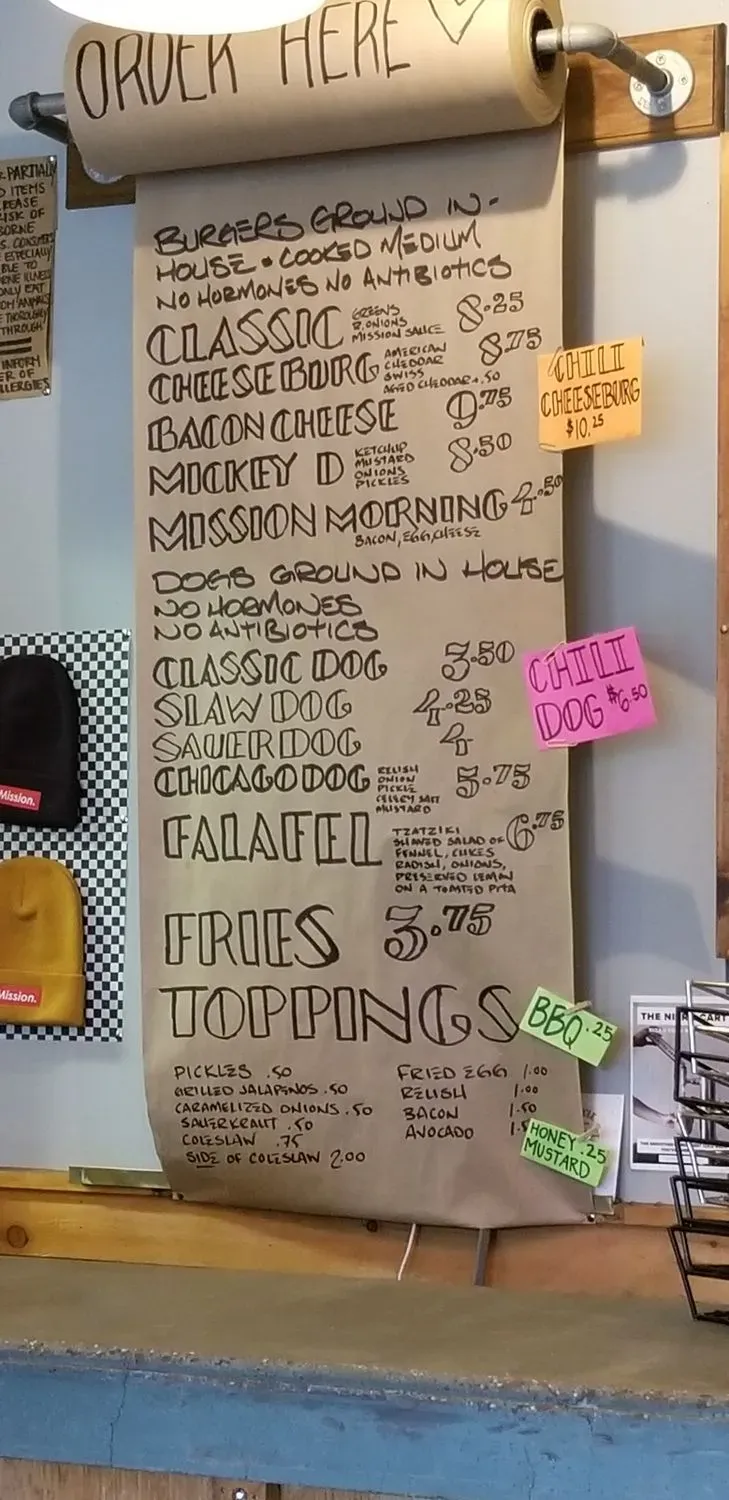 ORDER HERE
PARTIALLY
ITEMS
RISK OF
ESPECIALLY
ONLY EAT
THROUGH
INFORM
BURGERS GROUND IN-
HOUSE • COOKED MEDIUM
NO HORMONES NO ANTIBIOTICS
CLASSIC GREENS R.ONIONS MISSION SAUCE 8.25
CHEESEBURG AMERICAN CHEDDAR SWISS AGED CHEDDAR+.50 8.75
BACON CHEESE 9.75
MICKEY D KETCHUP MUSTARD ONIONS PICKLES 8.50
MISSION MORNING 4.50
BACON, EGG, CHEESE
CHILI
CHEESEBURG
$10.25
DOGS GROUND IN HOUSE
NO HORMONES
NO ANTIBIOTICS
CLASSIC DOG 3.50
SLAW DOG 4.25
SAUER DOG 4
CHICAGO DOG RELISH ONION PICKLE CELERY SALT MUSTARD 5.75
CHILI
DOG $6.50
FALAFEL 6.75
TZATZIKI
SHAVED SALAD OF
FENNEL, CUKES
RADISH, ONIONS,
PRESERVED LEMON
ON A TOASTED PITA
FRIES 3.75
TOPPINGS
BBQ .25
PICKLES .50
GRILLED JALAPENOS .50
CARAMELIZED ONIONS .50
SAUERKRAUT .50
COLESLAW .75
SIDE OF COLESLAW 2.00
FRIED EGG 1.00
RELISH 1.00
BACON 1.50
AVOCADO
HONEY .25
MUSTARD
Mission.
Mission.